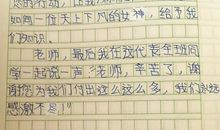 如同一位天上下凡的女神，给予我
们知识。
老师，最后我在这代表全班同
学一起说一声：老师，辛苦了，谢
谢您为我们付出这么这么多，我们永远
感激不尽！"